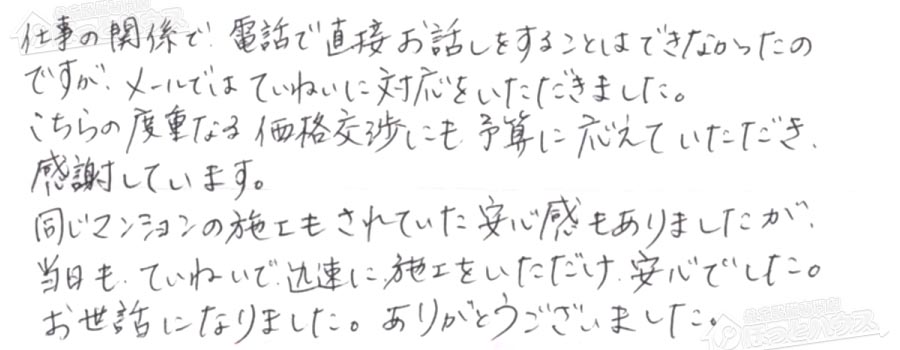 仕事の関係で、電話で直接お話しをすることはできなかったの
ですが、メールではていねいに対応をいただきました。
こちらの度重なる価格交渉にも予算に応えていただき、
感謝しています。
同じマンションの施工もされていた安心感もありましたが、
当日も、ていねいで迅速に施工をいただけ、安心でした。
お世話になりました。ありがとうございました。
ほっとハウス